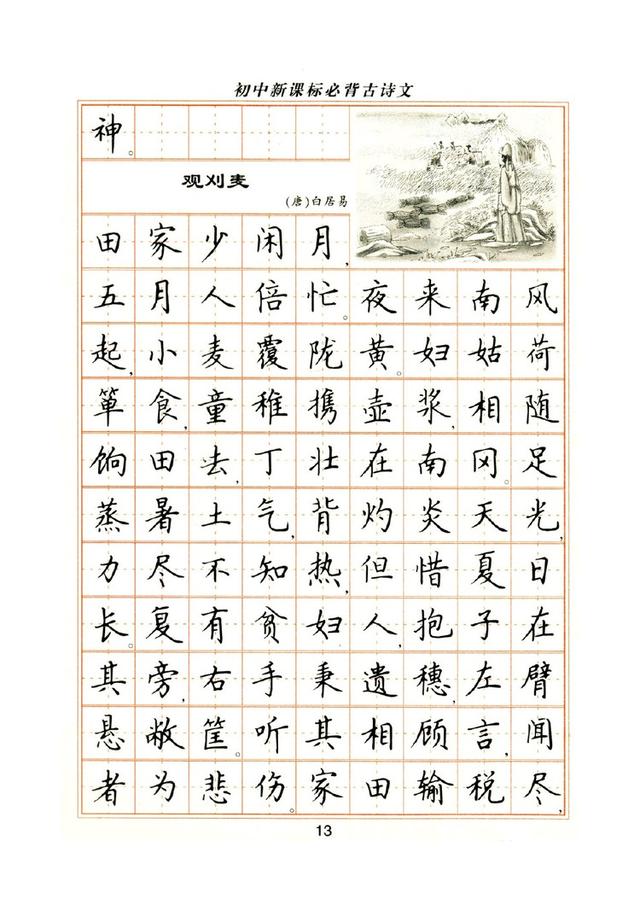 初中新课标必背古诗文
神。
观刈麦
(唐)白居易
田家少闲月,
五月人倍忙。夜来南风
起,小麦覆陇黄。妇姑荷
箪食,童稚携壶浆,相随
饷田去,丁壮在南冈。足
蒸暑土气,背灼炎天光,
力尽不知热,但惜夏日
长。复有贫妇人,抱子在
其旁,右手秉遗穗,左臂
悬敝筐。听其相顾言,闻
者为悲伤。家田输税尽,
13